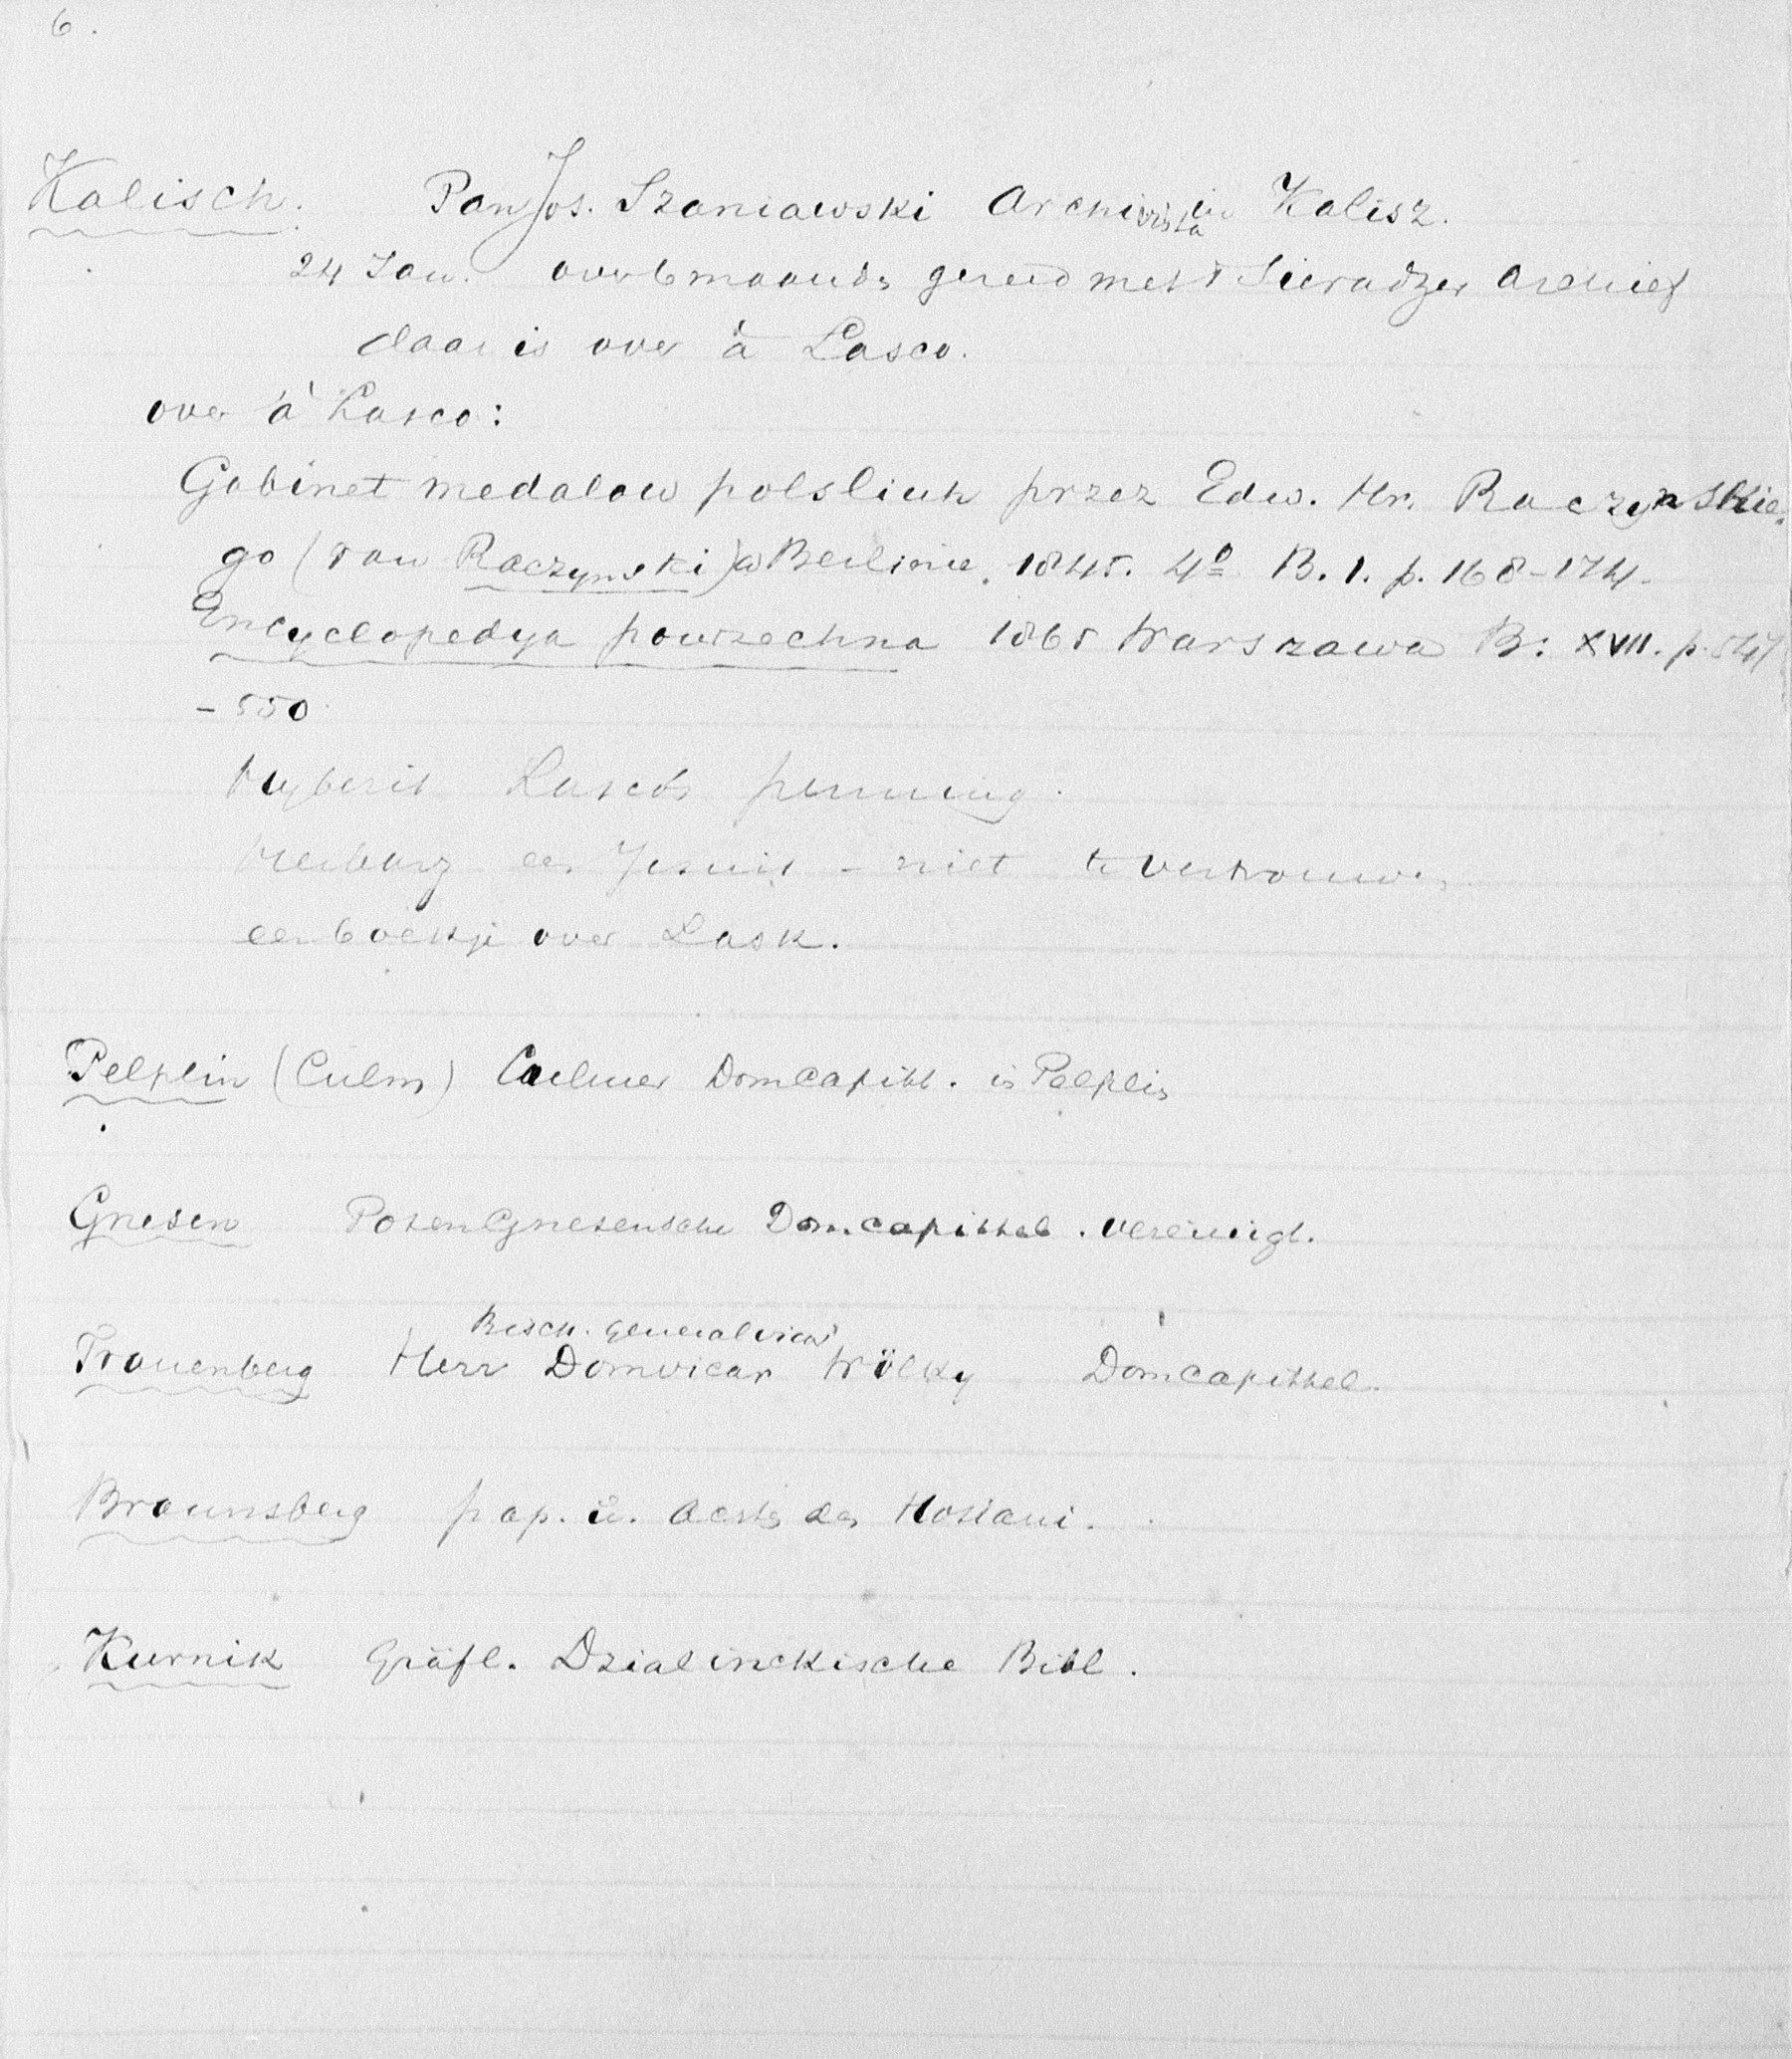 6.
Kalisch. Pan Jos. Szaniawski Archivista in Kalisz.
24 Jan. over 6 maanden gereed met 't Sieradzer Archief
daar is over à Lasco.
over à Lasco:
Gabinet medalow polslich przez Edw. Hr. Raczynskie-
go (van Raczynski) w Berlinie. 1845. 4º B. 1. p. 168-174.
Encyclopedya powszechna 1865 Warszawa B: XVII. p. 547
- 550.
Lasco's penning.
een Jesuit - niet te vertrouwen
een boekje over Lask.
Pelplin (Culm) Culmer Domcapittl. in Pelplin
Gnesen Posen Gnesensche Domcapittel. vereinigt.
Bisch. Generalvicar
Frauenberg Herr Domvicar Wölky Domcapittel.
Braunsberg pap. u. des Hosiani.
Kurnik Gräfl. Dzialinckische Bibl.